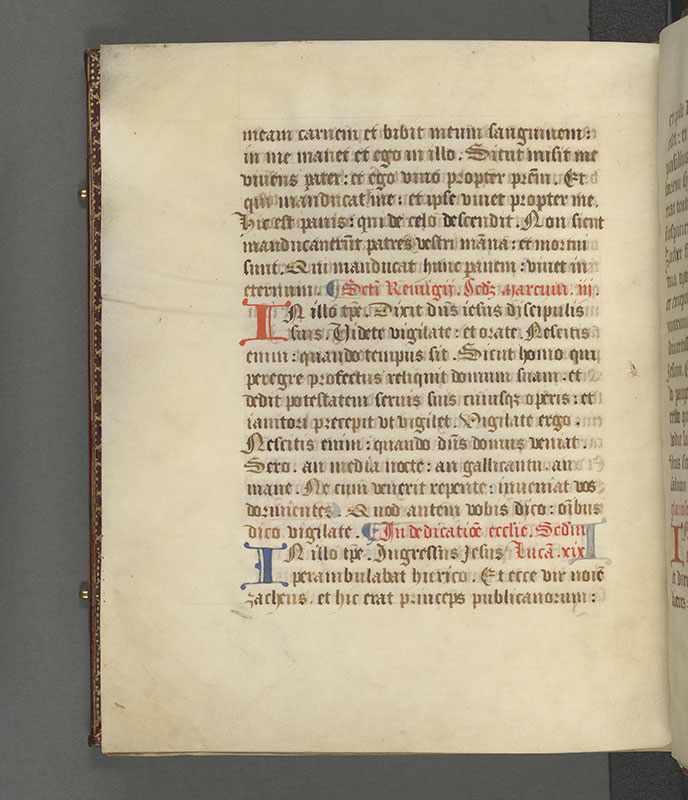 meam carnem et bibit meum sanguinem:
in me manet et ego in illo. Sicut misit me
vivens pater: et ego vivo propter prēm. Et
qui manducat me: et ipse vivet propter me.
Hic est panis: qui de celo descendit. Non sicut
manducaverūt patres vestri māna: et mortui
sunt. Qui manducat hunc panem: vivet in
eternum. Scti Remigij. Scdz marcum. iij.
IN illo tp̄e. Dixit dn̄s iesus discipulis
suis. Videte vigilate: et orate. Nescitis
enim: quando tempus sit. Sicut homo qui
peregre profectus reliquit domum suam: et
dedit potestatem servis suis cuiusqz operis: et
ianitori precepit vt vigilet. Vigilate ergo.
Nescitis enim: quando dn̄s domus veniat.
Sero. an media nocte: an gallicantu. an
mane. Ne cum venerit repente: inveniat vos
dormientes. Quod autem vobis dico: oībus
dico vigilate. In dedicatiōe ecclie. Scdm
IN illo tp̄e. Ingressus Jesus Lucā. xix
perambulabat hierico. Et ecce vir noīe
zacheus. et hic erat princeps publicanorum: